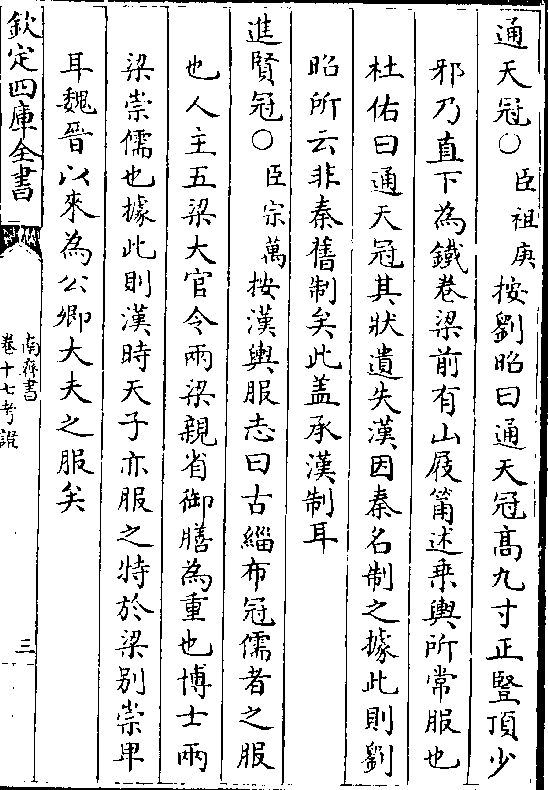 通天冠○臣祖庚按劉昭曰通天冠高九寸正豎頂少
邪乃直下為鐵卷梁前有山展筩述乗輿所常服也
杜佑曰通天冠其狀遺失漢因秦名制之據此則劉
昭所云非秦舊制矣此盖承漢制耳
進賢冠○臣宗萬按漢輿服志曰古緇布冠儒者之服
也人主五梁大官令兩梁親省御膳為重也博士兩
梁崇儒也據此則漢時天子亦服之特於梁别崇卑
耳魏晉以來為公卿大夫之服矣
欽定四庫全書
南齊書
卷十七考證
三